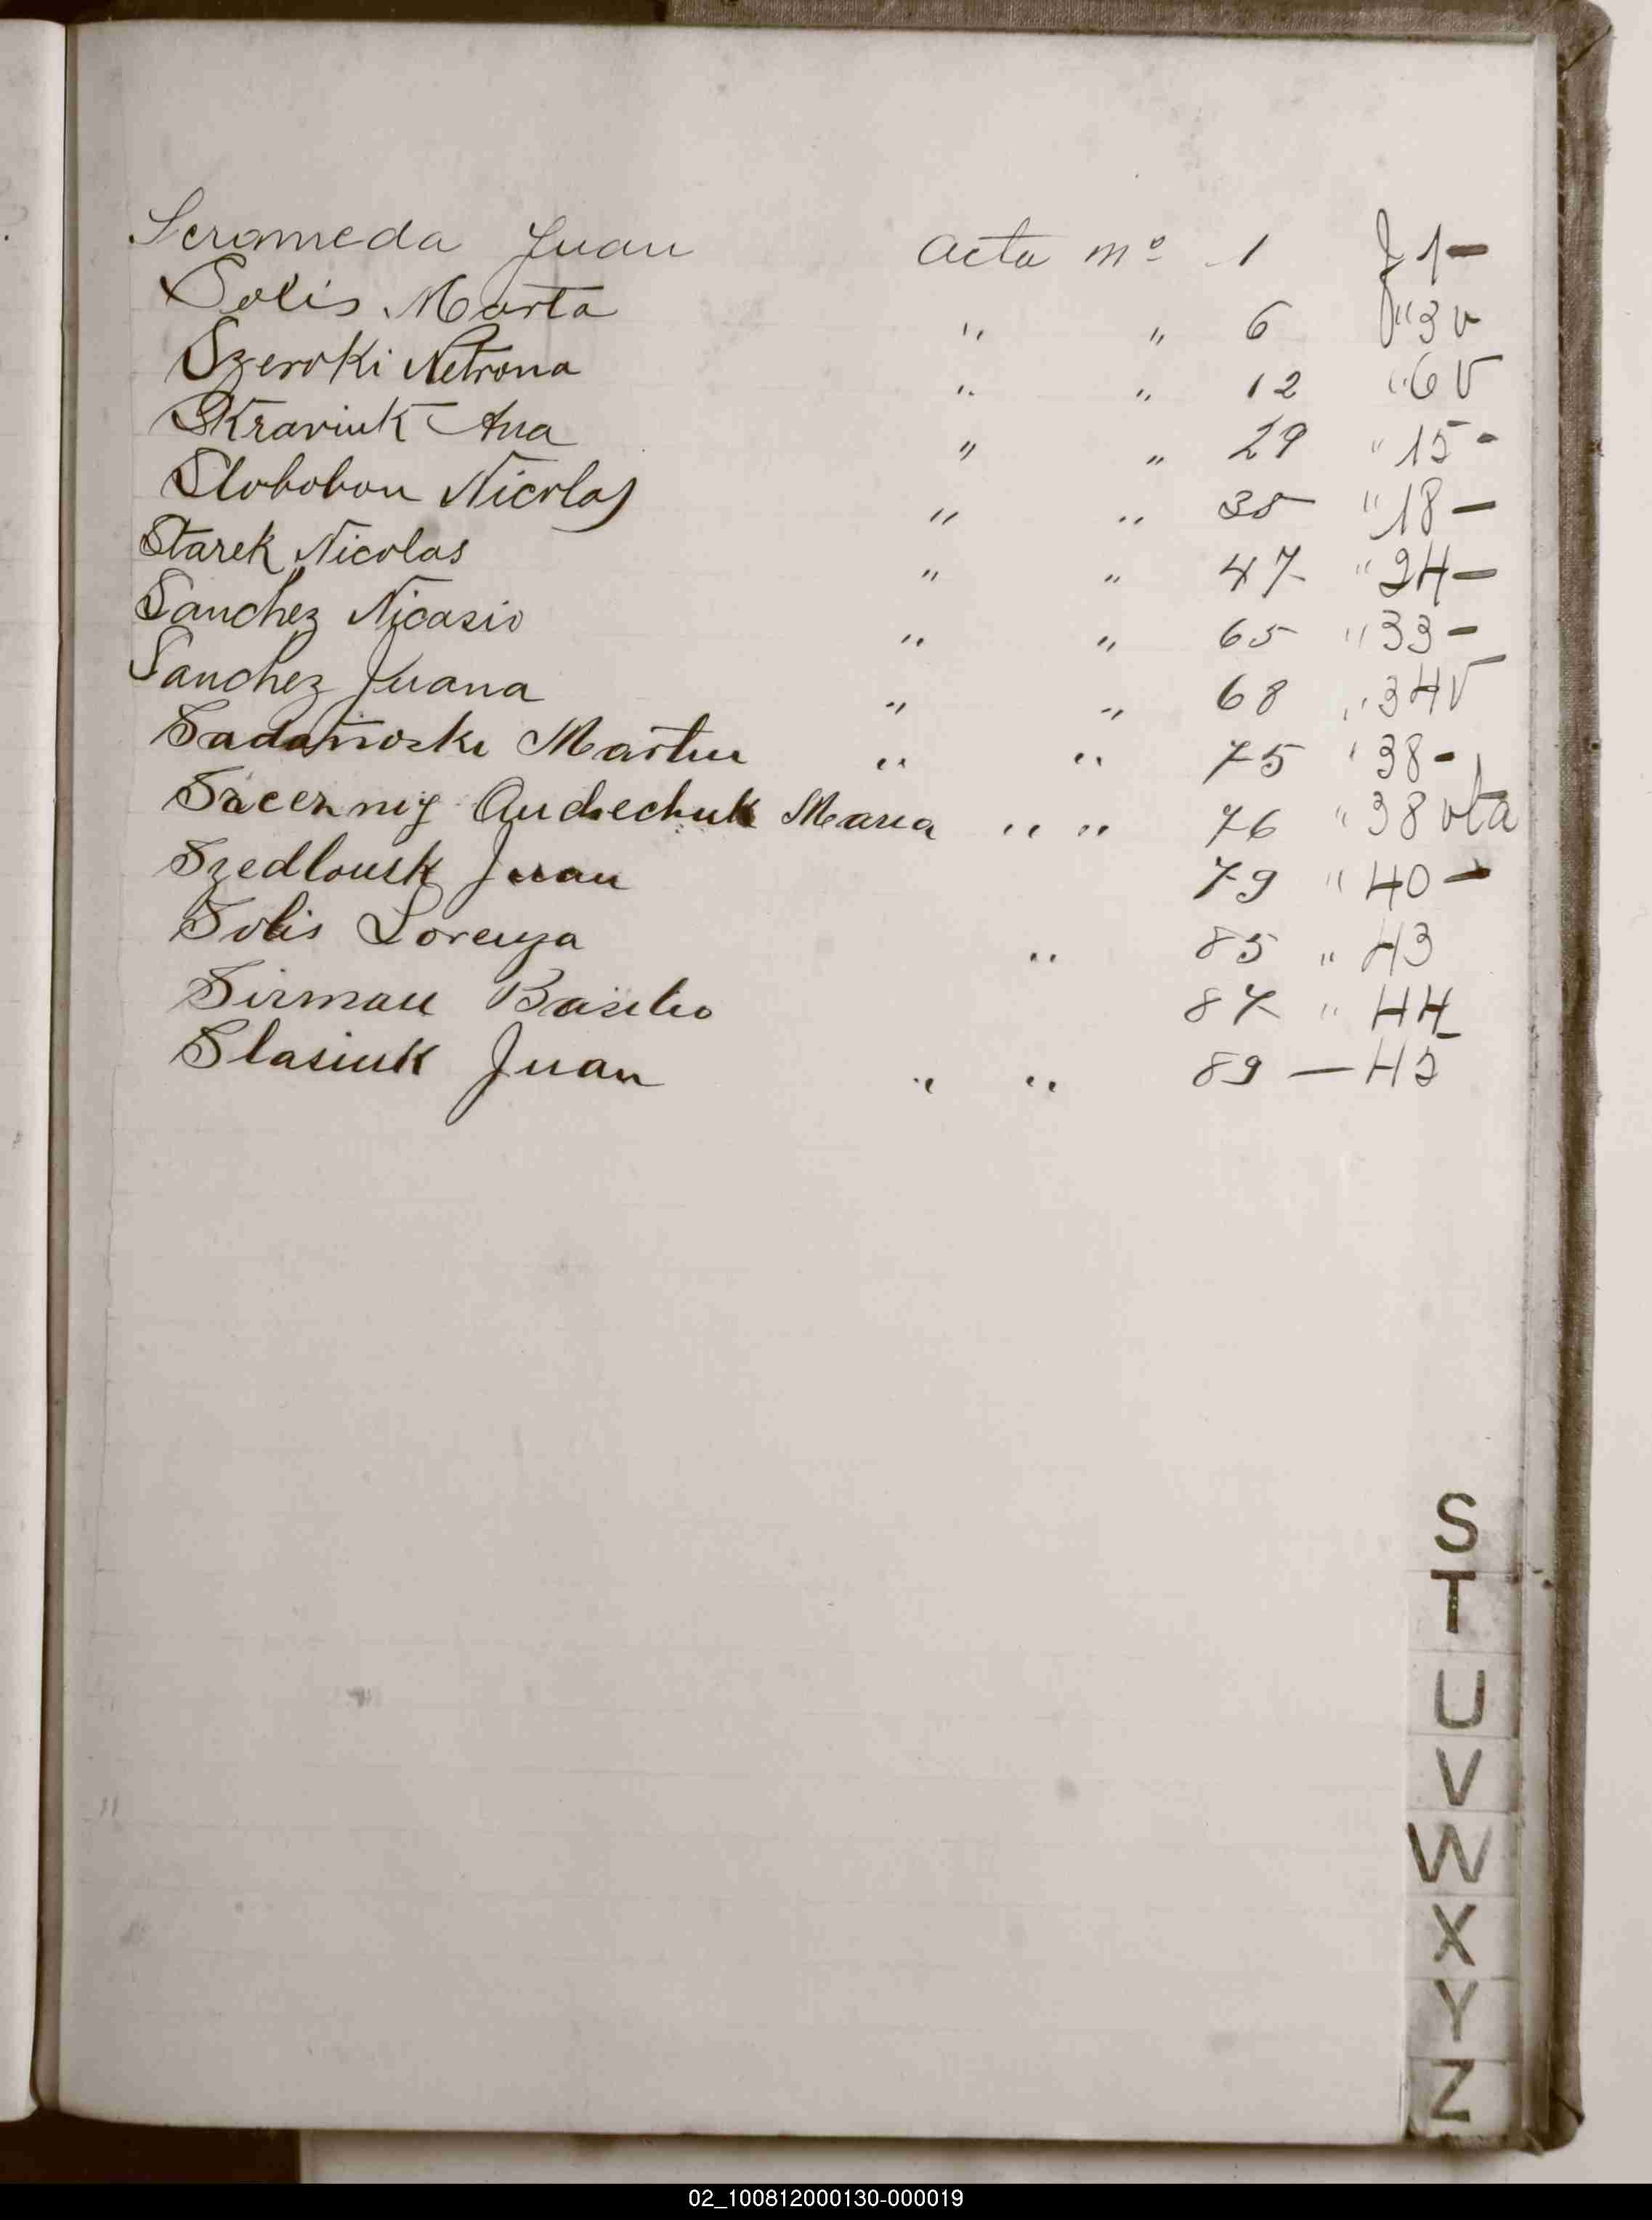 Scrameda Juan Acta nº 1 f 1-
Solis Marta " " 6 f "3 v
Szeroki Netrona " " 12 "6 v
Skraviuk Ana " " 29 "15-
Slobobon Nicolas " " 35 "18-
Starek Nicolas " " 47 "24-
Sanchez Nicasio " " 65 "33-
Sanchez Juana " " 68 "34 v
Martin " " 75 "38-
Maria " " 76 "38 vta
Szedlousk Juan 79 "40-
Solis Lorenza " 85 "43
Sirman Basilio 87 "44
Slasiuk Juan " " 89 — 45
S
T
U
V
W
X
Y
Z
02_100812000130-000019